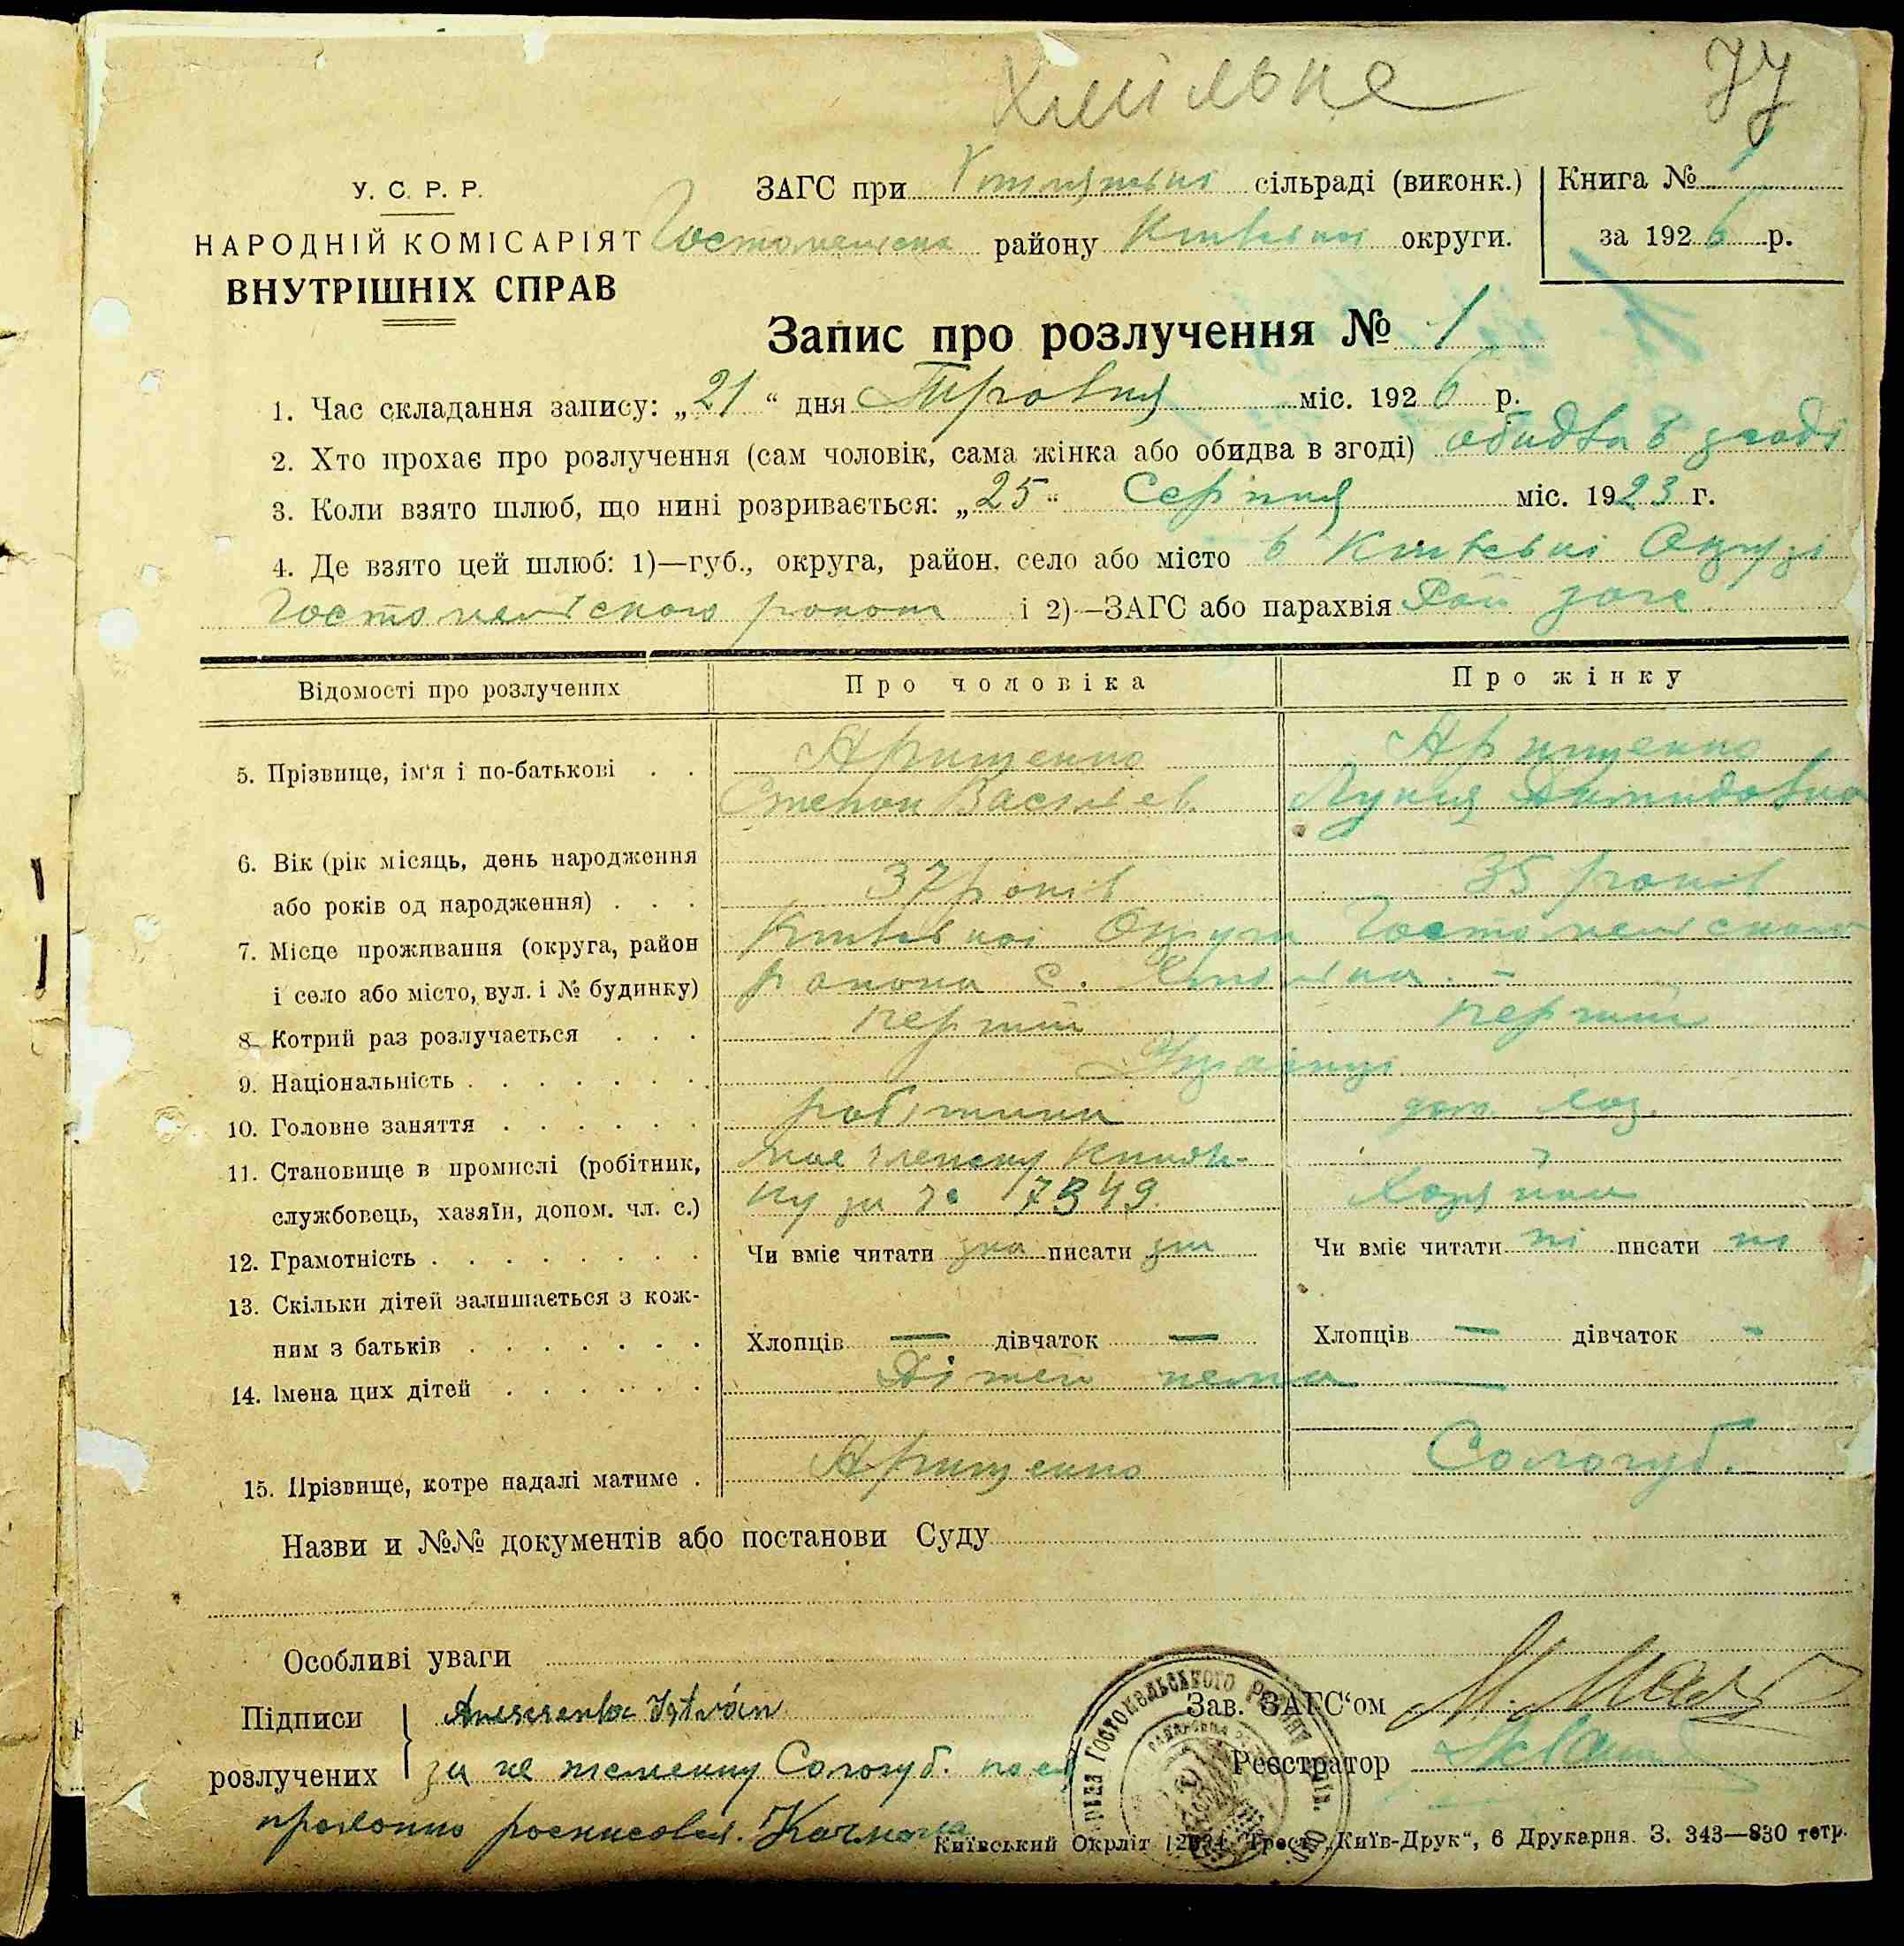 Хмільна
77
У. С. Р. Р.
НАРОДНІЙ КОМІСАРІЯТ
ВНУТРІШНІХ СПРАВ
ЗАГС при сільраді (виконк.)
Гостомельск району Київської округи.
Книга №
за 1926 р.
Запис про розлучення № 1
1. Час складання запису: „21“ дня Травня міс. 1926 р.
2. Хто прохає про розлучення (сам чоловік, сама жінка або обидва в згоді) обидва в згоді
3. Коли взято шлюб, що нині розривається: „25“ Серпня міс. 1923 г.
4. Де взято цей шлюб: 1)—губ., округа, район, село або місто в Київські Окрузі
Гостомельского району і 2)—ЗАГС або парахвія Рай загс
Відомості про розлучених
Про чоловіка
Про жінку
5. Прізвище, ім‘я і по-батькові . .
Арищенко
Степан Василіев.
Арищенко
Лукия
6. Вік (рік місяць, день народження
або років од народження) . . .
37 років
35 років
7. Місце проживання (округа, район
і село або місто, вул. і № будинку)
Київскої Округи Гостомельского
району с. Хмільна. –
8. Котрий раз розлучається . . .
перший
перший
9. Національність . . . . . . .
Українці
10. Головне заняття . . . . . .
робітник
дом. хаз.
11. Становище в промислі (робітник,
службовець, хазяїн, допом. чл. с.)
має членску книж-
ку за № 7349.
Хазяйка
12. Грамотність . . . . . . . .
Чи вміє читати зна писати зна
Чи вміє читати ні писати ні
13. Скільки дітей залишається з кож-
ним з батьків . . . . . . .
Хлопців — дівчаток —
Хлопців — дівчаток -
14. Імена цих дітей . . . . . .
Дітей нема —
15. Прізвище, котре надалі матиме .
Арищенко
Сологуб.
Назви и №№ документів або постанови Суду
Особливі уваги
Підписи
розлучених
за не писменну Сологуб. по ей
прозьбі росписався.
Зав. ЗАГС‘ом
Реєстратор
Київський Окрліт Трест „Київ-Друк“, 6 Друкарня. З. 343—830 тетр.